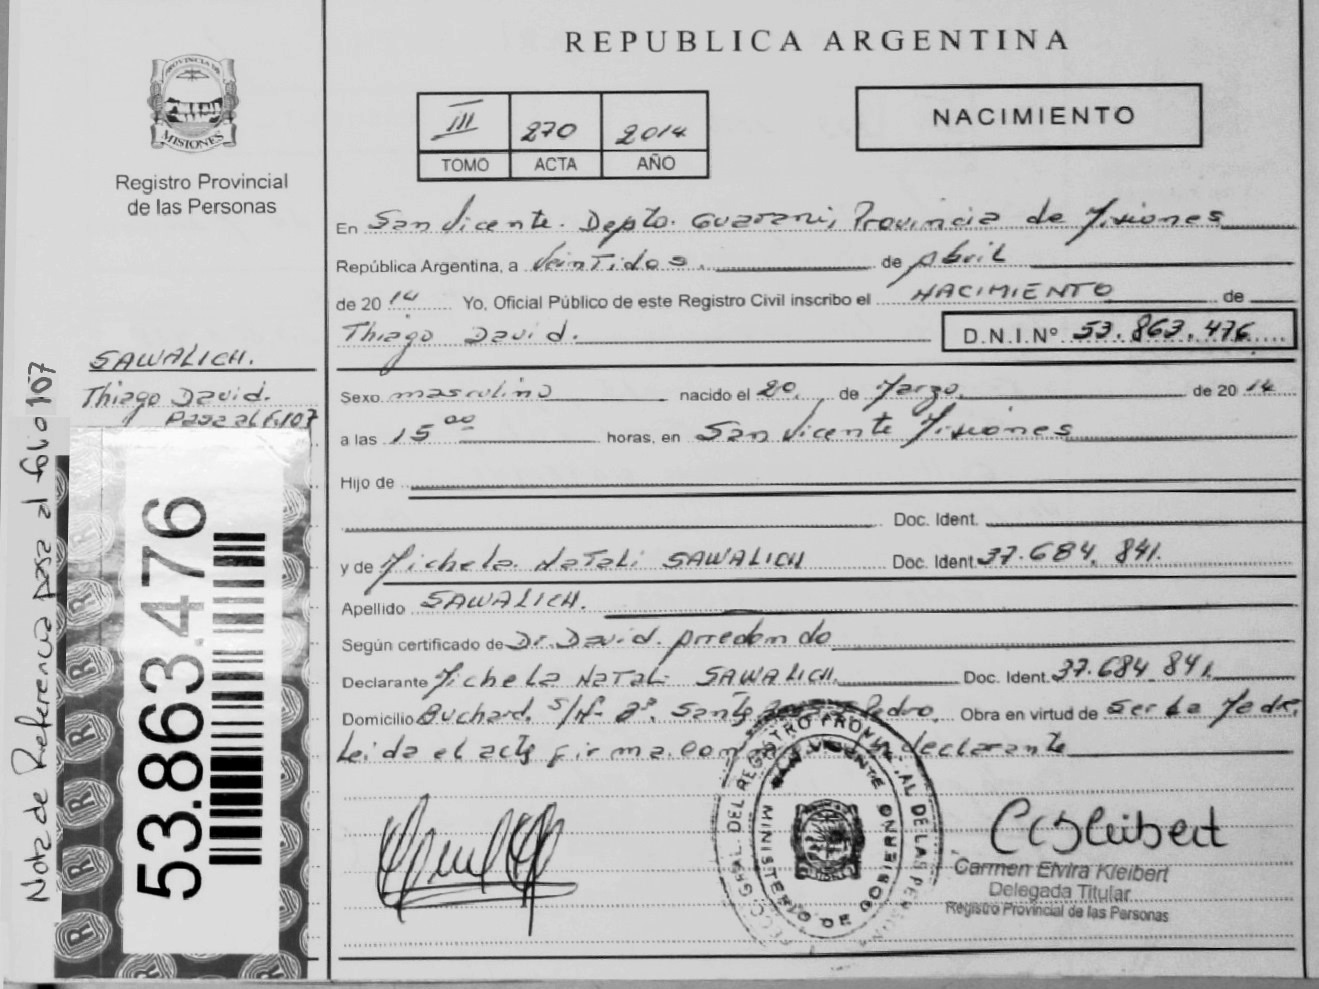 REPUBLICA ARGENTINA
PROVINCIA DE
MISIONES
Registro Provincial
de las Personas
III 270 2014
TOMO ACTA AÑO
NACIMIENTO
En San Vicente. Depto. Guarani, Provincia de Misiones
República Argentina, a Veintidos. de Abril
de 2014 Yo, Oficial Público de este Registro Civil inscribo el NACIMIENTO de
Thiago David. D.N.I.Nº 53.863.476
SAWALICH.
Thiago David.
Pasa al f.107
Nota de Referencia pasa al folio 107
53.863.476
Sexo masculino nacido el 20. de Marzo. de 2014
a las 15 00 horas, en San Vicente Misiones
Hijo de
Doc. Ident.
y de Michela Natali SAWALICH Doc. Ident. 37.684.841.
Apellido SAWALICH.
Según certificado de Dr. David. Arredondo
Declarante Michela Natali SAWALICH. Doc. Ident. 37.684.841.
Domicilio Buchard. S/Nº Bº. Pedro. Obra en virtud de Ser La Madre.
Leida el acta firma declarante
DEL REGISTRO PROVINCIAL DE LAS PERSONAS
SAN VICENTE
MINISTERIO DE GOBIERNO
Carmen Elvira Kleibert
Delegada Titular
Registro Provincial de las Personas